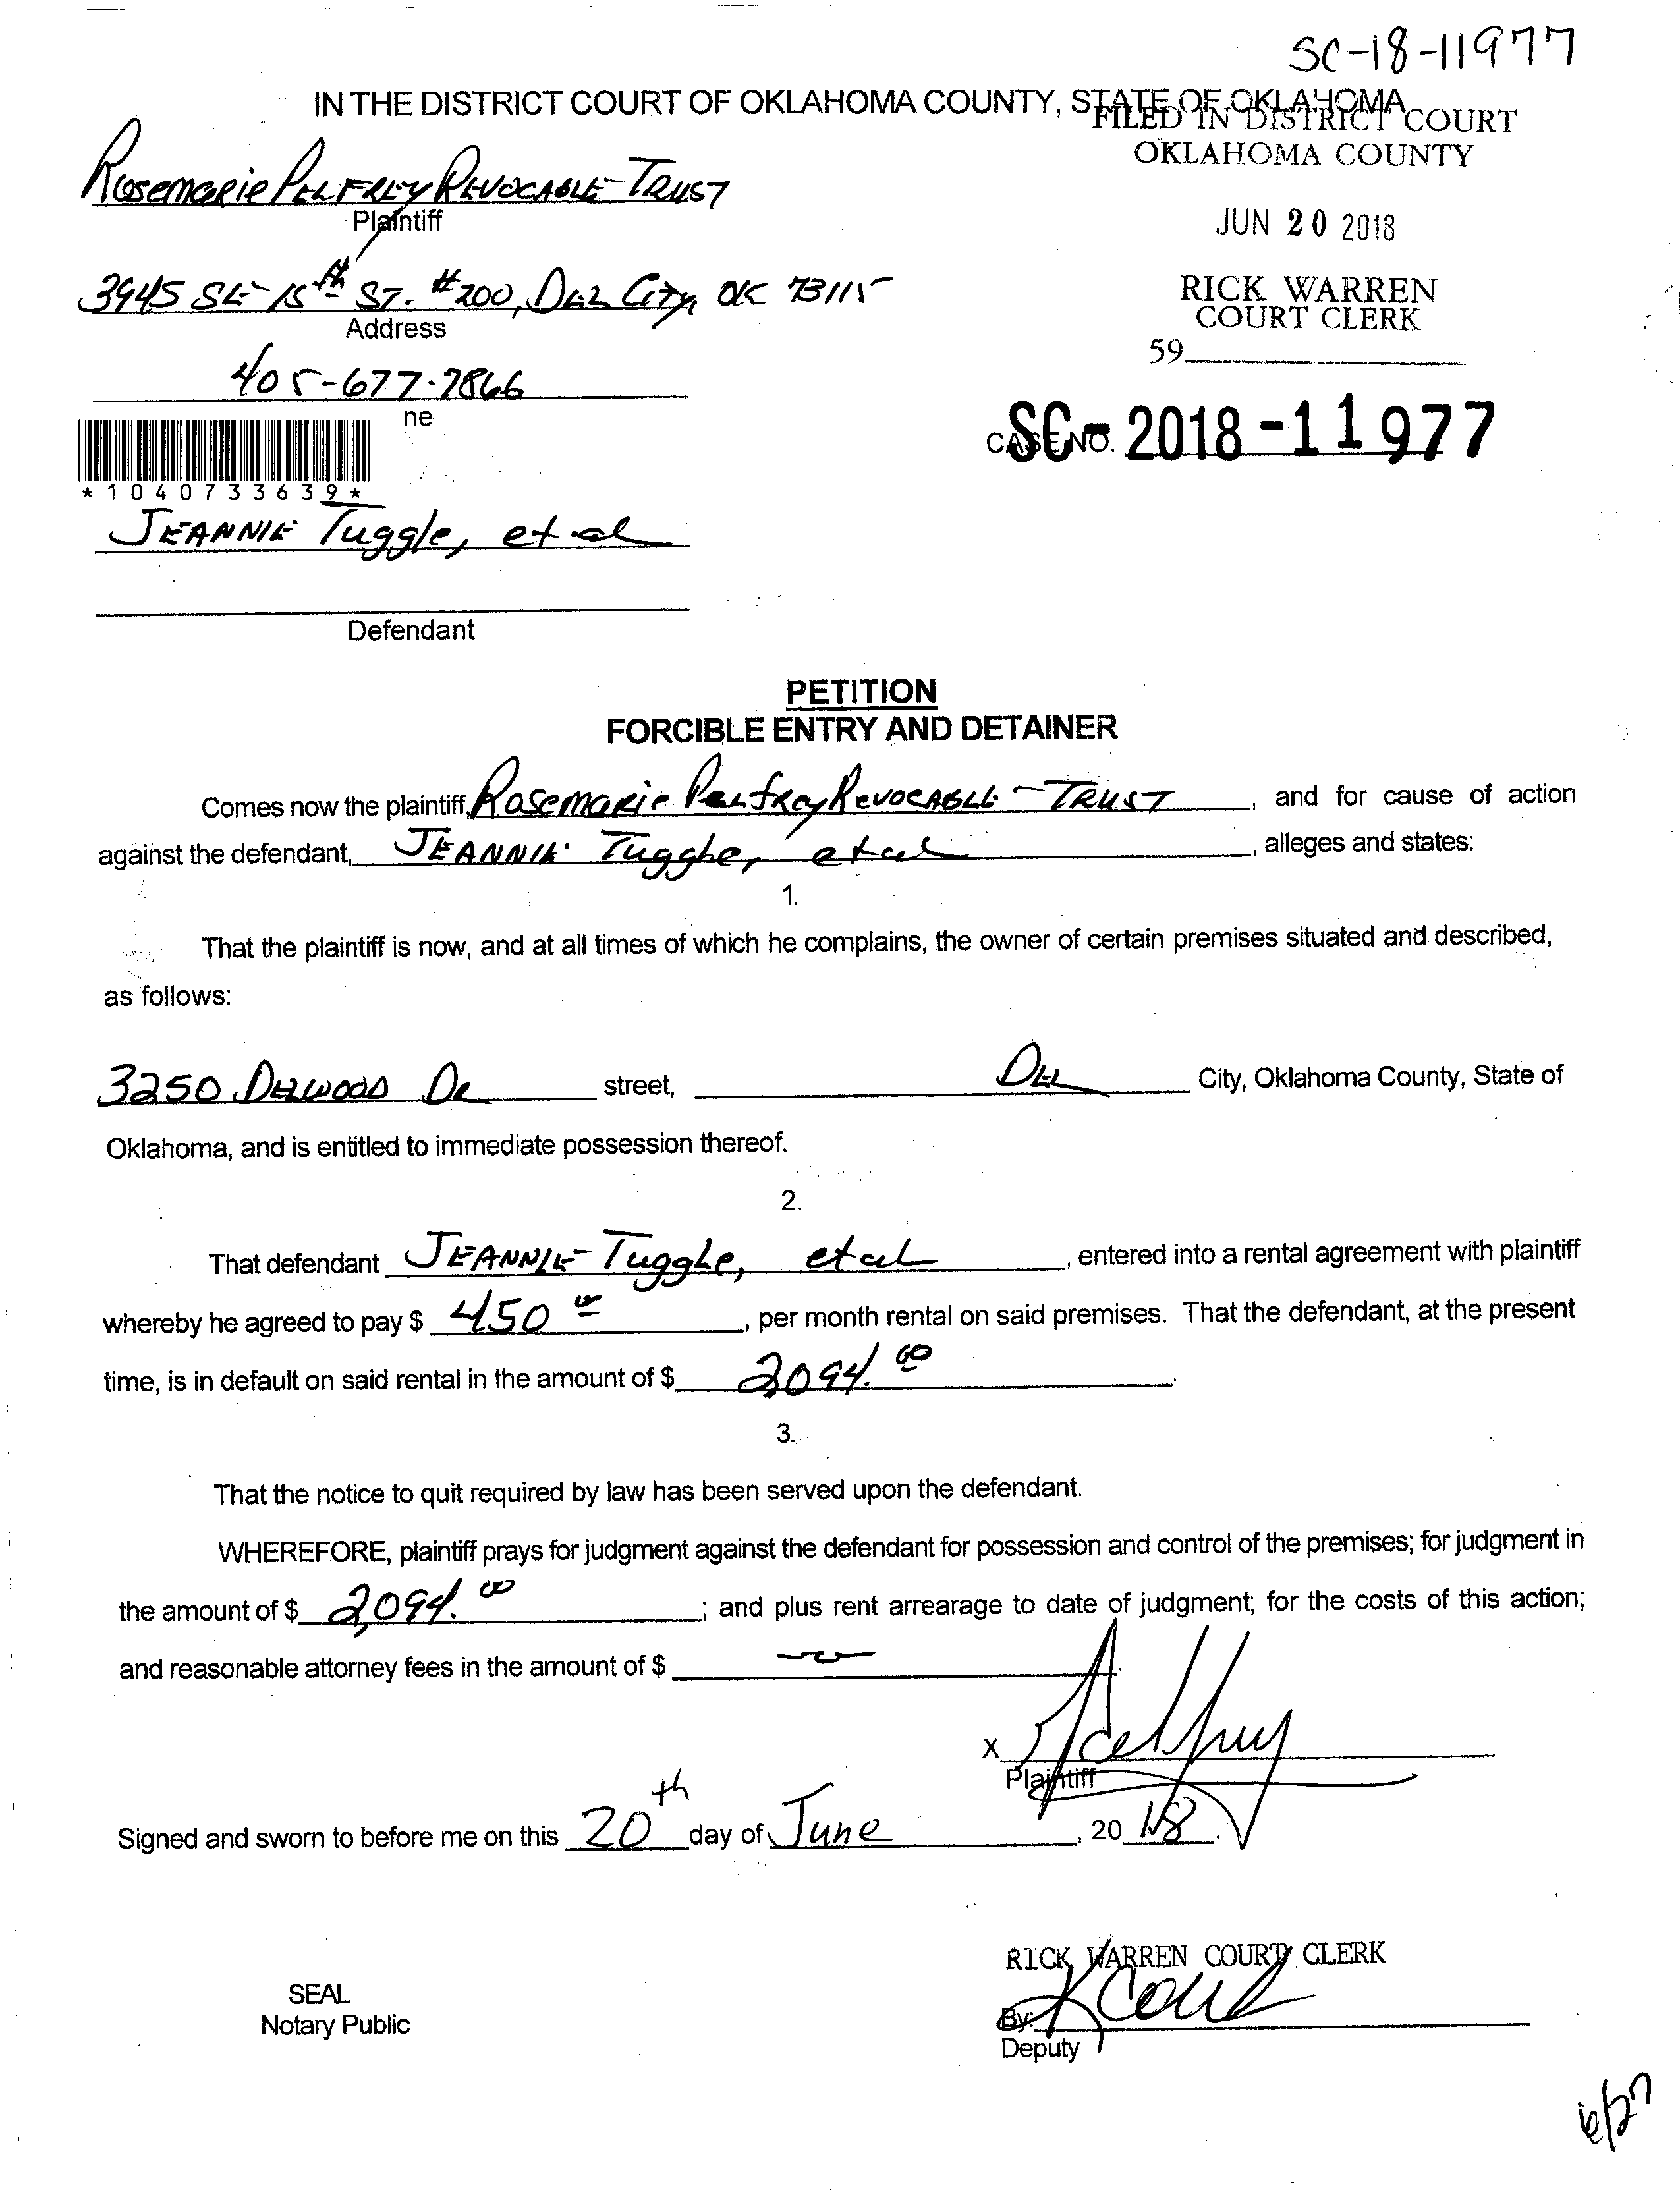 SC-18-11977
IN THE DISTRICT COURT OF OKLAHOMA COUNTY, STATE OF OKLAHOMA
FILED IN DISTRICT COURT
OKLAHOMA COUNTY
Rosemarie Pelfrey Revocable Trust
Plaintiff
JUN 20 2018
3945 SE 15th St. #200, Del City, OK 73115
Address
RICK WARREN
COURT CLERK
59
405-677-7866
ne
CASE NO. SC-2018-11977
*1040733639*
Jeannie Tuggle, et al
Defendant
PETITION
FORCIBLE ENTRY AND DETAINER
Comes now the plaintiff, Rosemarie Pelfrey Revocable Trust, and for cause of action
against the defendant, Jeannie Tuggle, et al, alleges and states:
1.
That the plaintiff is now, and at all times of which he complains, the owner of certain premises situated and described,
as follows:
3250 Delwood Dr street, Del City, Oklahoma County, State of
Oklahoma, and is entitled to immediate possession thereof.
2.
That defendant Jeannie Tuggle, et al, entered into a rental agreement with plaintiff
whereby he agreed to pay $ 450 00, per month rental on said premises. That the defendant, at the present
time, is in default on said rental in the amount of $ 2094.00.
3.
That the notice to quit required by law has been served upon the defendant.
WHEREFORE, plaintiff prays for judgment against the defendant for possession and control of the premises; for judgment in
the amount of $ 2,094.00; and plus rent arrearage to date of judgment; for the costs of this action;
and reasonable attorney fees in the amount of $
X Pelfrey
Plaintiff
Signed and sworn to before me on this 20th day of June, 20 18.
RICK WARREN COURT CLERK
SEAL
Notary Public
By:
Deputy
6/27